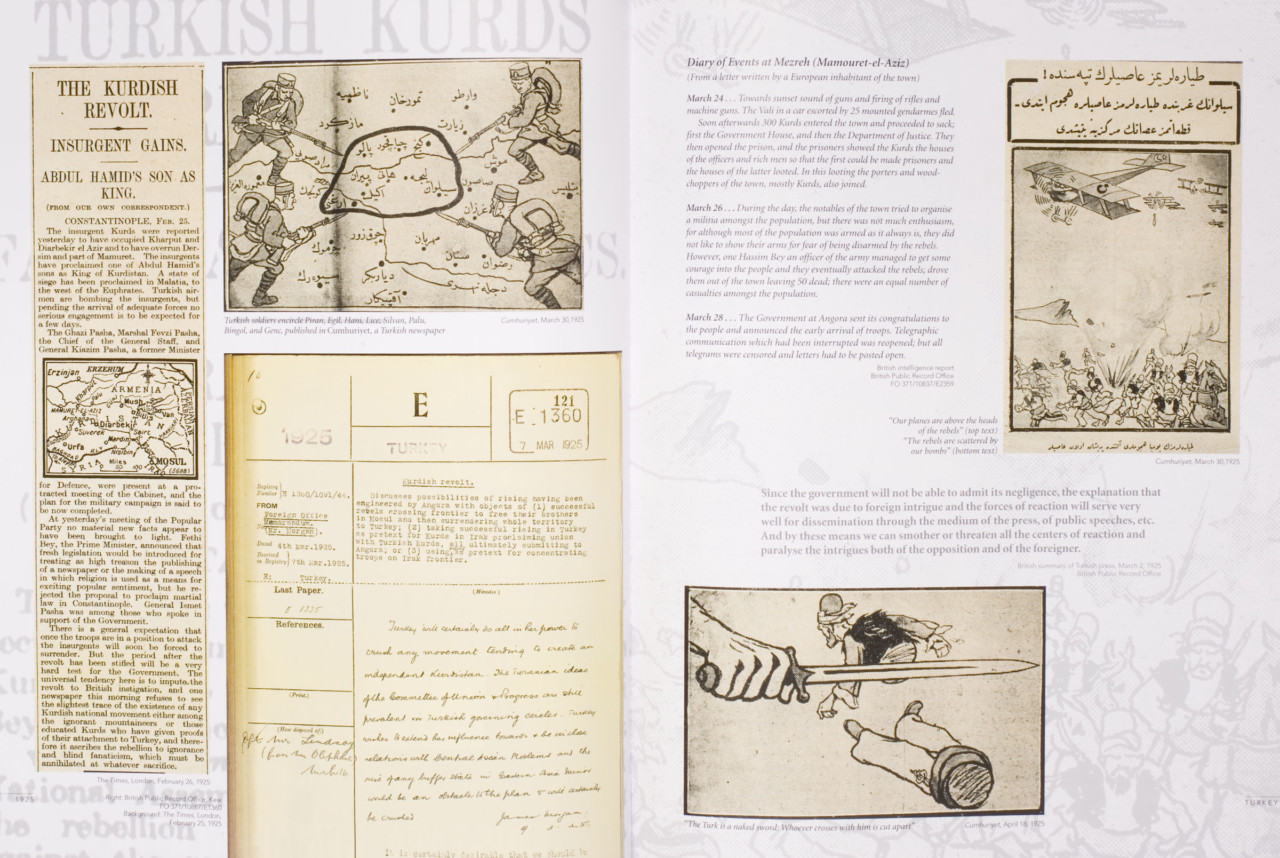 TURKISH KURDS
THE KURDISH
REVOLT.
INSURGENT GAINS.
ABDUL HAMID'S SON AS
KING.
(FROM OUR OWN CORRESPONDENT.)
CONSTANTINOPLE, FEB. 25.
The insurgent Kurds were reported
yesterday to have occupied Kharput and
Diarbekir el Azir and to have overrun Der-
sim and part of Mamuret. The insurgents
have proclaimed one of Abdul Hamid's
sons as King of Kurdistan. A state of
siege has been proclaimed in Malatia, to
the west of the Euphrates. Turkish air-
men are bombing the insurgents, but
pending the arrival of adequate forces no
serious engagement is to be expected for
a few days.
The Ghazi Pasha, Marshal Fevzi Pasha,
the Chief of the General Staff, and
General Kiazim Pasha, a former Minister
Erzinjan ERZERUM
ARMENIA
Mush
Van
Diarbekir
Suverek
Mardin
Urfa
Nisibin
MOSUL
SYRIA
Miles
for Defence, were present at a pro-
tracted meeting of the Cabinet, and the
plan for the military campaign is said to
be now completed.
At yesterday's meeting of the Popular
Party no material new facts appear to
have been brought to light. Fethi
Bey, the Prime Minister, announced that
fresh legislation would be introduced for
treating as high treason the publishing
of a newspaper or the making of a speech
in which religion is used as a means for
exciting popular sentiment, but he re-
jected the proposal to proclaim martial
law in Constantinople. General Ismet
Pasha was among those who spoke in
support of the Government.
There is a general expectation that
once the troops are in a position to attack
the insurgents will soon be forced to
surrender. But the period after the
revolt has been stifled will be a very
hard test for the Government. The
universal tendency here is to impute the
revolt to British instigation, and one
newspaper this morning refuses to see
the slightest trace of the existence of any
Kurdish national movement either among
the ignorant mountaineers or those
educated Kurds who have given proofs
of their attachment to Turkey, and there-
fore it ascribes the rebellion to ignorance
and blind fanaticism, which must be
annihilated at whatever sacrifice.
The Times, London, February 26, 1925
Right: British Public Record Office, Kew
FO 371/10867/E1360
Background: The Times, London,
February 25, 1925
1925
Turkish soldiers encircle Piran, Egil, Hani, Lice, Silvan, Palu,
Bingol, and Genc, published in Cumhuriyet, a Turkish newspaper
Cumhuriyet, March 30,1925
E
1925
TURKEY
121
E 1360
7 MAR 1925
Registry
Number
E 1360/1091/44.
FROM
Foreign Office
Memorandum.
(Mr. Morgan).
Dated 4th Mar.1925.
Received
in Registry
7th Mar.1925.
E: Turkey.
Kurdish revolt.
Discusses possibilities of rising having been
engineered by Angora with objects of (1) successful
rebels crossing frontier to free their brothers
in Mosul and then surrendering whole territory
to Turkey; (2) taking successful rising in Turkey
as pretext for Kurds in Irak proclaiming union
with Turkish Kurds, all ultimately submitting to
Angora, or (3) using as pretext for concentrating
troops on Irak frontier.
Last Paper.
E 1335
References.
(Print.)
(How disposed of.)
Mr. Lindsay
(from Mr Oliphant)
(Minutes.)
Turkey will certainly do all in her power to
crush any movement tending to create an
independent Kurdistan. The Turanian ideas
of the Committee of Union & Progress are still
prevalent in Turkish governing circles. Turkey
wishes to extend her influence towards & be in close
relations with Central Asian Moslems and the
rise of any buffer state in Eastern Asia Minor
would be an obstacle to the plan & will certainly
be crushed
James Morgan
It is certainly desirable that we should be
Diary of Events at Mezreh (Mamouret-el-Aziz)
(From a letter written by a European inhabitant of the town)
March 24 . . . Towards sunset sound of guns and firing of rifles and
machine guns. The Vali in a car escorted by 25 mounted gendarmes fled.
Soon afterwards 300 Kurds entered the town and proceeded to sack;
first the Government House, and then the Department of Justice. They
then opened the prison, and the prisoners showed the Kurds the houses
of the officers and rich men so that the first could be made prisoners and
the houses of the latter looted. In this looting the porters and wood-
choppers of the town, mostly Kurds, also joined.
March 26 . . . During the day, the notables of the town tried to organise
a militia amongst the population, but there was not much enthusiasm,
for although most of the population was armed as it always is, they did
not like to show their arms for fear of being disarmed by the rebels.
However, one Hassim Bey an officer of the army managed to get some
courage into the people and they eventually attacked the rebels; drove
them out of the town leaving 50 dead; there were an equal number of
casualties amongst the population.
March 28 . . . The Government at Angora sent its congratulations to
the people and announced the early arrival of troops. Telegraphic
communication which had been interrupted was reopened; but all
telegrams were censored and letters had to be posted open.
British intelligence report
British Public Record Office
FO 371/10837/E2359
طياره‌لريمز عاصيلرك تپه سنده!
سيلوانك غربنده طياره‌لرمز عاصيلره هجوم ايتدى.
"Our planes are above the heads
of the rebels" (top text)
"The rebels are scattered by
our bombs" (bottom text)
Cumhuriyet, March 30,1925
Since the government will not be able to admit its negligence, the explanation that
the revolt was due to foreign intrigue and the forces of reaction will serve very
well for dissemination through the medium of the press, of public speeches, etc.
And by these means we can smother or threaten all the centers of reaction and
paralyse the intrigues both of the opposition and of the foreigner.
British summary of Turkish press, March 2, 1925
British Public Record Office
"The Turk is a naked sword; Whoever crosses with him is cut apart"
Cumhuriyet, April 18, 1925
TURKEY